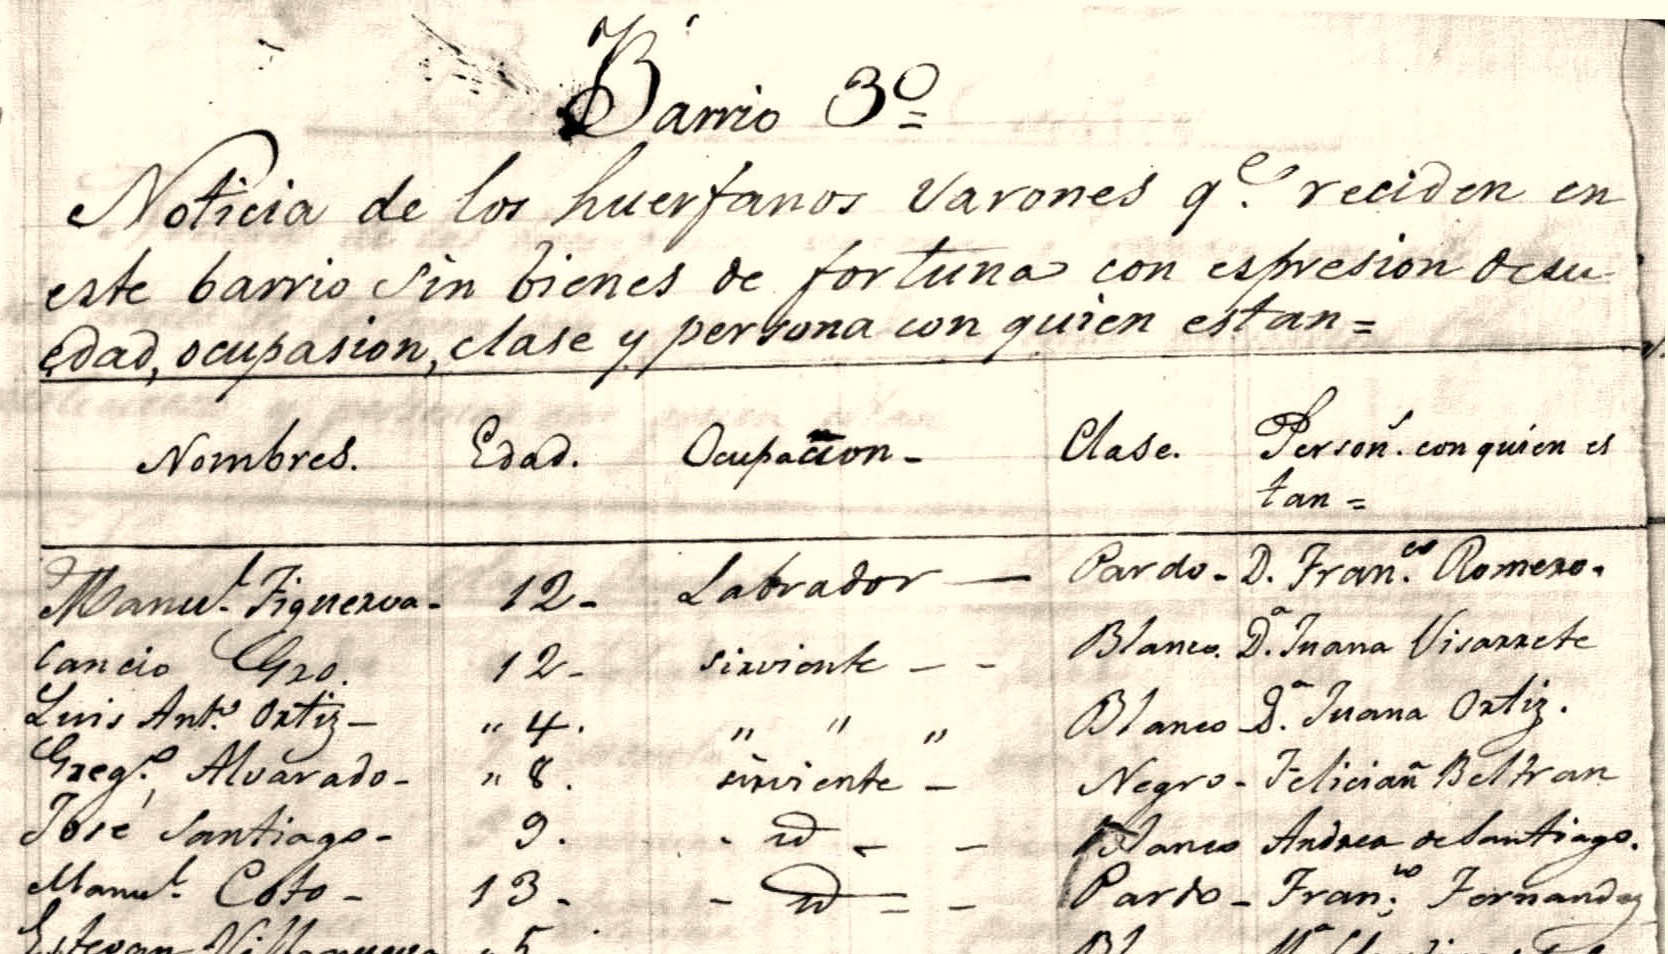 Barrio 3º=
Noticia de los huerfanos varones q.e reciden en
este barrio sin bienes de fortuna con espresion desu
edad, ocupasion, clase y persona con quien estan=
Nombres. Edad. Ocupacion- Clase. Person.s con quien es
tan=
Manu.l Figueroa- 12- Labrador — Pardo- D. Fran.co Romero.
Cancio Gro. 12- sirviente - - Blanco. D.a Juana Visarrete
Luis Ant.o Ortiz- " 4. " " " Blanco- D.a Juana Ortiz.
Greg.o Alvarado- " 8. sirviente - Negro- Felician Beltran
José Santiago- 9. - id - - Blanco Andrea de Santiago.
Manu.l Coto- 13- - id = - Pardo- Fran.co Fernandez
Estevan Villanueva " 5